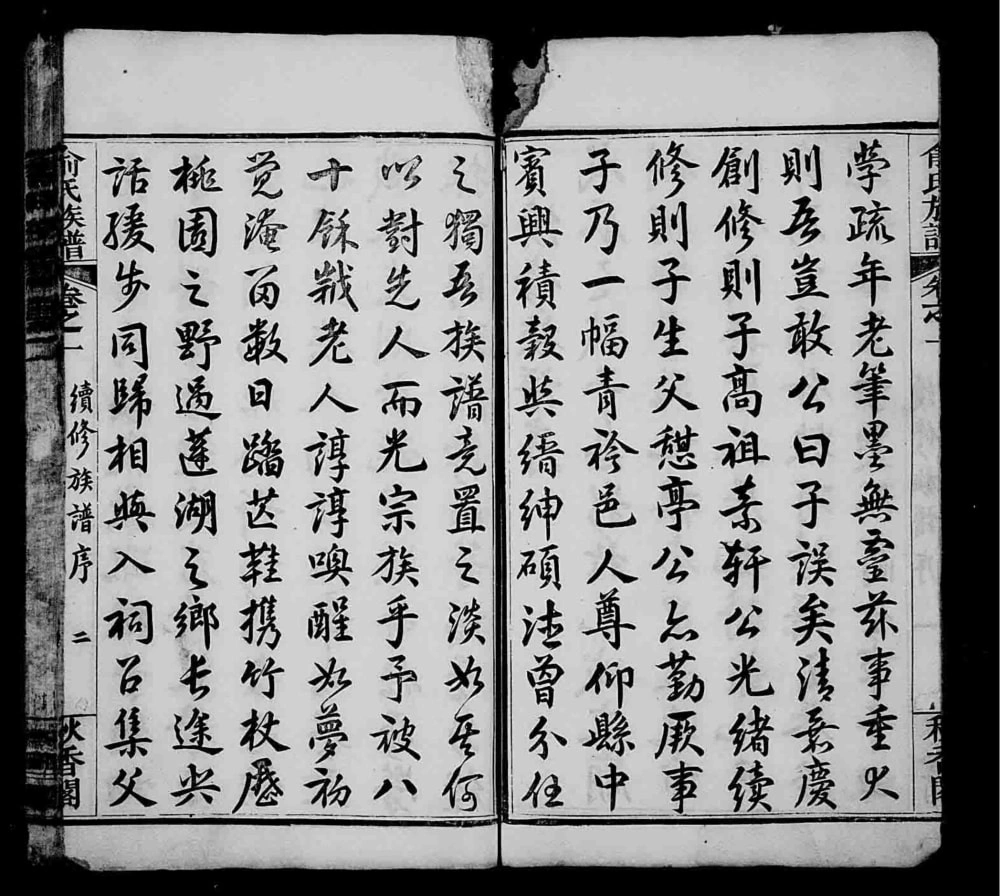 俞氏族譜
卷之一
秋香閣
學疏年老筆墨無靈茲事重大
則吾豈敢公曰子誤矣清嘉慶
創修則子高祖素軒公光緒續
修則子生父憩亭公亦勤厥事
子乃一幅青衿邑人尊仰縣中
賓興積穀與縉紳碩德曾分任
之獨吾族譜竟置之淡如其何
以對先人而光宗族乎予被八
十餘歲老人諄諄喚醒如夢初
覺淹留數日躡芒鞋携竹杖歷
桃園之野過蓮湖之鄉長途共
話緩步同歸相與入祠召集父
俞氏族譜
卷之一
續修族譜序
二
秋香閣